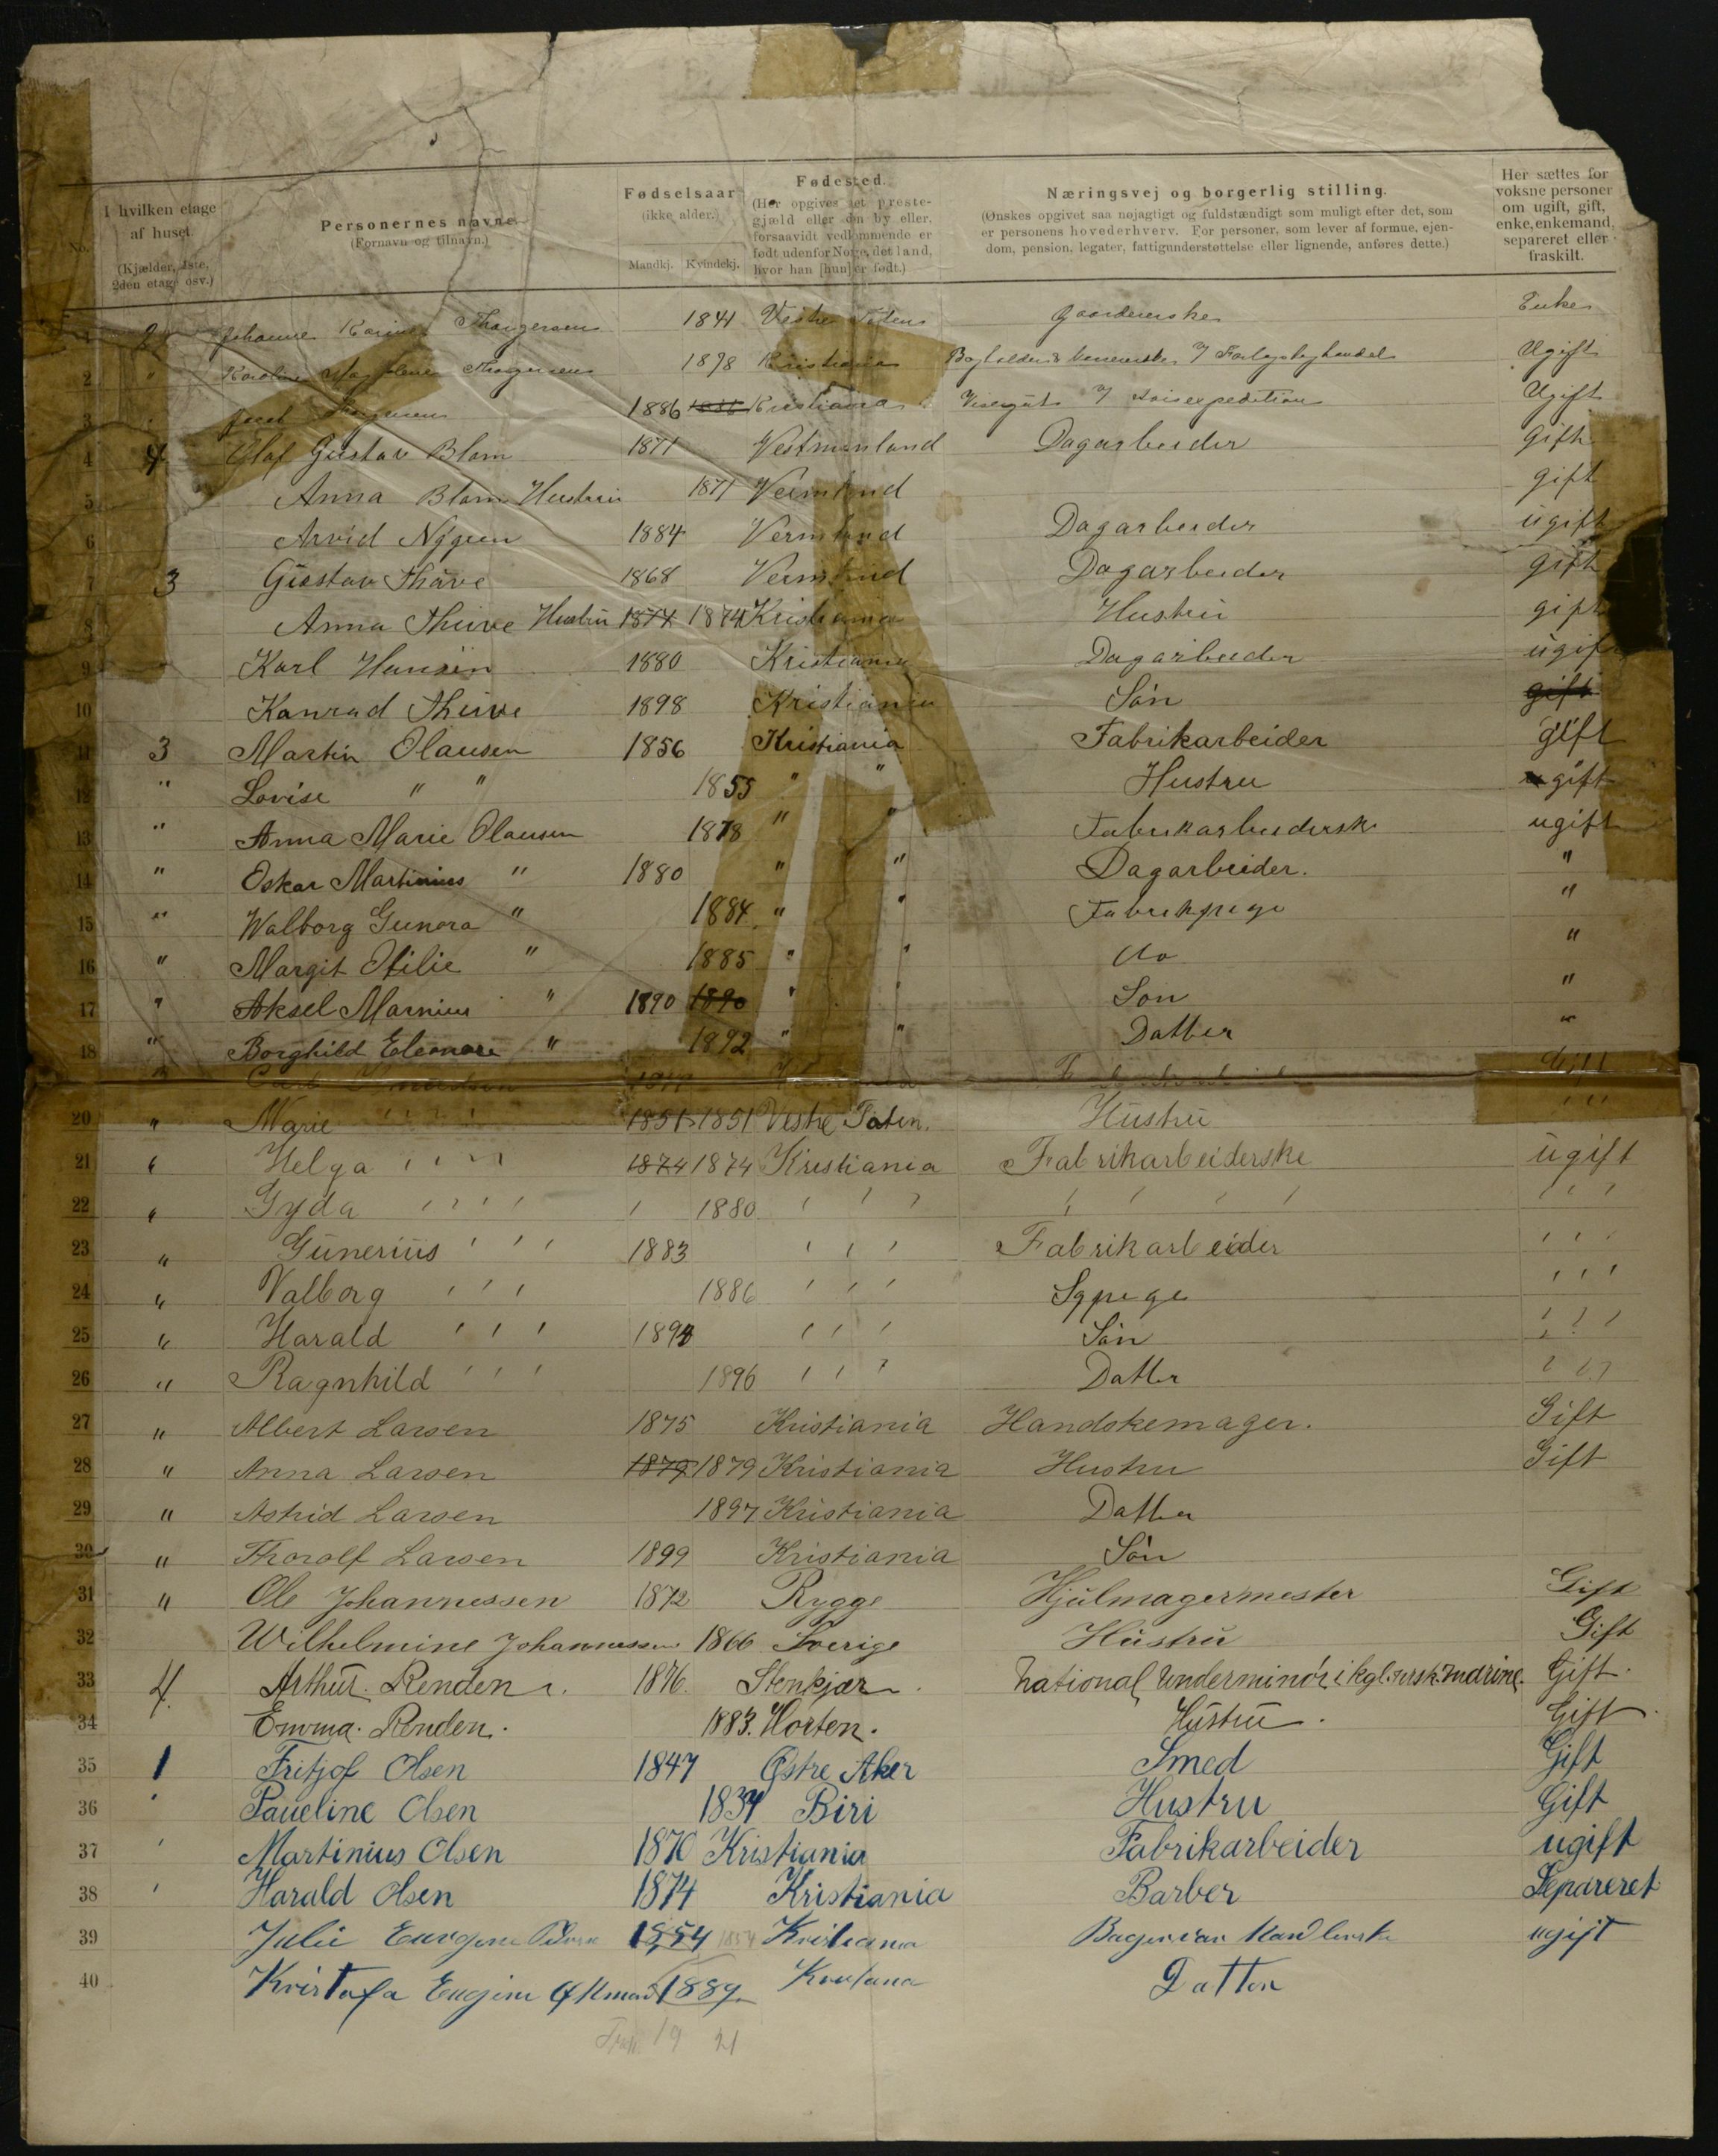 No.
I hvilken etage af huset.
(Kjælder, 1ste, 2den etage osv.)
Personernes navne.
(Fornavn og tilnavn.)
Fødselsaar
(ikke alder.)
Mandkj. Kvindekj.
Fødested.
(Her opgives det præste-
gjæld eller den by eller.
forsaavidt vedkommende er
født udenfor Norge, det land,
hvor han [hun] er født.)
Næringsvej og borgerlig stilling.
(Ønskes opgivet saa nøjagtigt og fuldstændigt som muligt efter det, som
er personens hovederhverv. For personer, som lever af formue, ejen-
dom, pension, legater, fattigunderstøttelse eller lignende, anføres dette.)
Her sættes for
voksne personer
om ugift, gift,
enke, enkemand,
separeret eller
fraskilt.
1 2 Johanne Karine Thorgersen 1841 Vestre Toten Gaardeierske Enke
2 " Karoline Thorgersen 1878 Kristiania Ugift
3 1886 1886 Kristiania Visergut Ugift
4 4 Olaf Gustav Blom 1871 Vestmanland Dagarbeider Gift
5 Anna Blom Hustru 1871 Vermland gift
6 Arvid Nygren 1884 Vermland Dagarbeider ugift
7 3 Gustav Thure 1868 Vermland Dagarbeider gift
8 Anna Thure Hustru 1874 1874 Kristiania Hustru gift
9 Karl Hansen 1880 Kristiania Dagarbeider ugift
10 Konrad Thure 1898 Kristiania Søn gift
11 3 Martin Olausen 1856 Kristiania Fabrikarbeider gift
12 " Lovise " " 1855 " " Hustru gift
13 " Anna Marie Olausen 1878 " " Fabrikarbeidersk ugift
14 " Oskar Martinius " 1880 " " Dagarbeider. "
15 " Walborg Gunora " 1884 " " Fabrikpige "
16 " Margit Otilie " 1885 " " do "
17 " Aksel Marnius " 1890 1890 " " Søn "
18 " Borghild Eleonore " 1892 " " Datter "
Gift
20 " Marie " " 1851 1851 Vestre Toten. Hustru " "
21 " Helga " " 1874 1874 Kristiania Fabrikarbeiderske ugift
22 " Gyda " " 1880 " " " " " "
23 " Gunerius " " 1883 " " Fabrikarbeider " "
24 " Valborg " " 1886 " " Sypige " "
25 " Harald " " 1893 " " Søn " "
26 " Ragnhild " " 1896 " " Datter " "
27 " Albert Larsen 1875 Kristiania Handskemager. Gift
28 " Anna Larsen 1879 1879 Kristiania Hustru Gift
29 " Astrid Larsen 1897 Kristiania Datter
30 " Thorolf Larsen 1899 Kristiania Søn
31 " Ole Johannessen 1872 Rygge Hjulmagermester Gift
32 Wilhelmine Johannessen 1866 Sverige Hustru Gift
33 4. Arthur. Renden. 1876. Stenkjær. National underminør i kgl. norsk marine. Gift.
34 Emma. Renden. 1883. Horten. Hustru. Gift.
35 1 Fritjof Olsen 1847 Østre Aker Smed Gift
36 " Paueline Olsen 1834 Biri Hustru Gift
37 " Martinius Olsen 1870 Kristiania Fabrikarbeider ugift
38 " Harald Olsen 1874 Kristiania Barber Separeret
39 Julie 1854 1854 Kristiania ugift
40 Kristofa Eugine 1889 Kristiania Datter
19 21